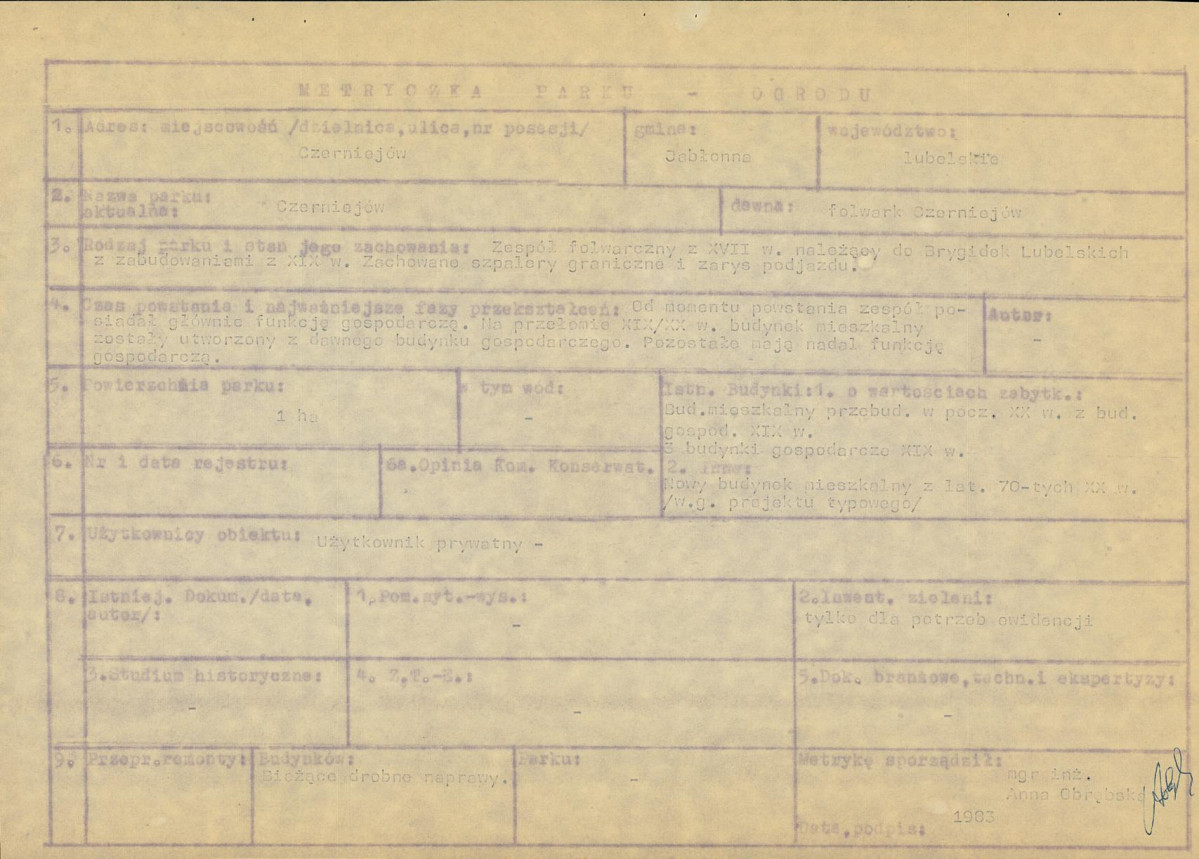 METRYCZKA PARKU - OGRODU
1. Adres: miejscowość /dzielnica,ulica,nr posesji/
Czerniejów
gmina:
Jabłonna
województwo:
lubelskie
2. Nazwa parku:
aktualna: Czerniejów
dawna: folwark Czerniejów
3. Rodzaj parku i stan jego zachowania: Zespół folwarczny z XVII w. należący do Brygidek Lubelskich
z zabudowaniami z XIX w. Zachowane szpalery graniczne i zarys podjazdu.
4. Czas powstania i najważniejsze fazy przekształceń: Od momentu powstania zespół po-
siadał głównie funkcję gospodarczą. Na przełomie XIX/XX w. budynek mieszkalny
zostały utworzony z dawnego budynku gospodarczego. Pozostałe mają nadal funkcję
gospodarczą.
Autor:
-
5. Powierzchnia parku:
1 ha
w tym wód:
-
Istn. Budynki:1. o wartościach zabytk.:
Bud.mieszkalny przebud. w pocz. XX w. z bud.
gospod. XIX w.
3 budynki gospodarcze XIX w.
6. Nr i data rejestru:
6a.Opinia Kom. Konserwat.
2. Inne:
Nowy budynek mieszkalny z lat. 70-tych XX w.
/w.g. projektu typowego/
7. Użytkownicy obiektu: Użytkownik prywatny -
8. Istniej. Dokum./data,
autor/:
1.Pom.syt.-wys.:
-
2.Inwent. zieleni:
tylko dla potrzeb ewidencji
3.Studium historyczne:
-
4. Z.T.-E.:
-
5.Dok. branżowe,techn.i ekspertyzy:
-
9. Przepr.remonty:
Budynków:
Bieżące drobne naprawy.
Parku:
-
Metrykę sporządził:
mgr inż.
Anna Obrębska
1983
Data,podpis: